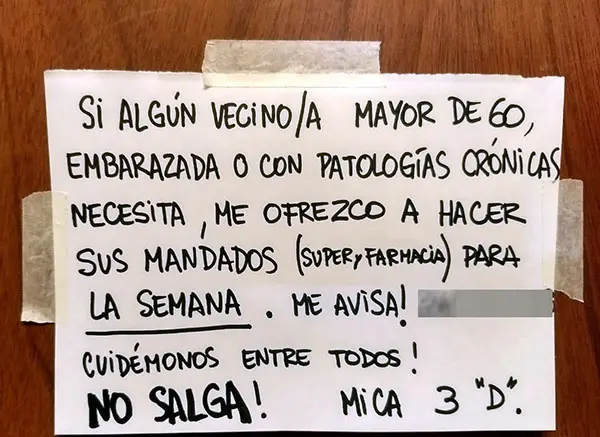 SI ALGÚN VECINO/A MAYOR DE 60,
EMBARAZADA O CON PATOLOGÍAS CRÓNICAS
NECESITA, ME OFREZCO A HACER
SUS MANDADOS (SUPER y FARMACIA) PARA
LA SEMANA. ME AVISA!
CUIDÉMONOS ENTRE TODOS!
NO SALGA! MICA 3 "D".